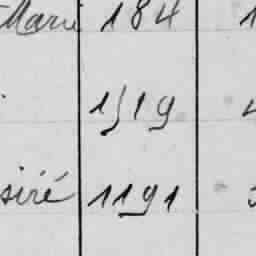 Marie 184 1
1519
siré 1191